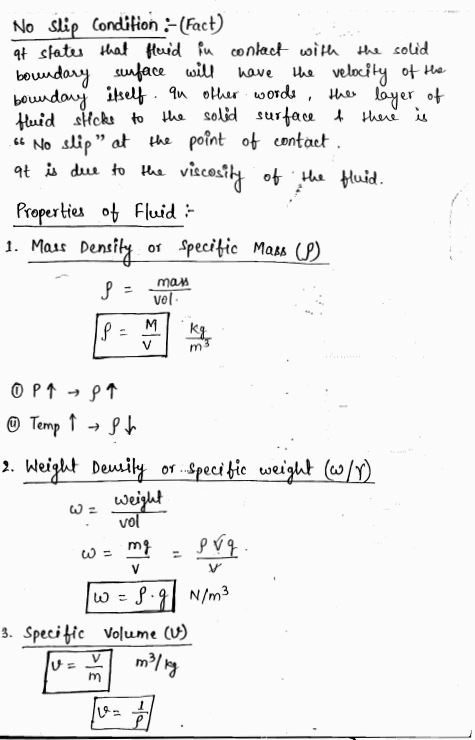 No Slip Condition :- (Fact)
It states that fluid in contact with the solid
boundary surface will have the velocity of the
boundary itself. In other words, the layer of
fluid sticks to the solid surface & there is
"No slip" at the point of contact.
It is due to the viscosity of the fluid.
Properties of Fluid :-
1. Mass Density or Specific Mass (ρ)
ρ = mass / vol.
ρ = M / V kg / m³
(i) P↑ → ρ↑
(ii) Temp ↑ → ρ↓
2. Weight Density or specific weight (ω/γ)
ω = weight / vol
ω = mg / V = ρVg / V
ω = ρ.g N/m³
3. Specific Volume (v)
v = V / m m³/kg
v = 1 / ρ